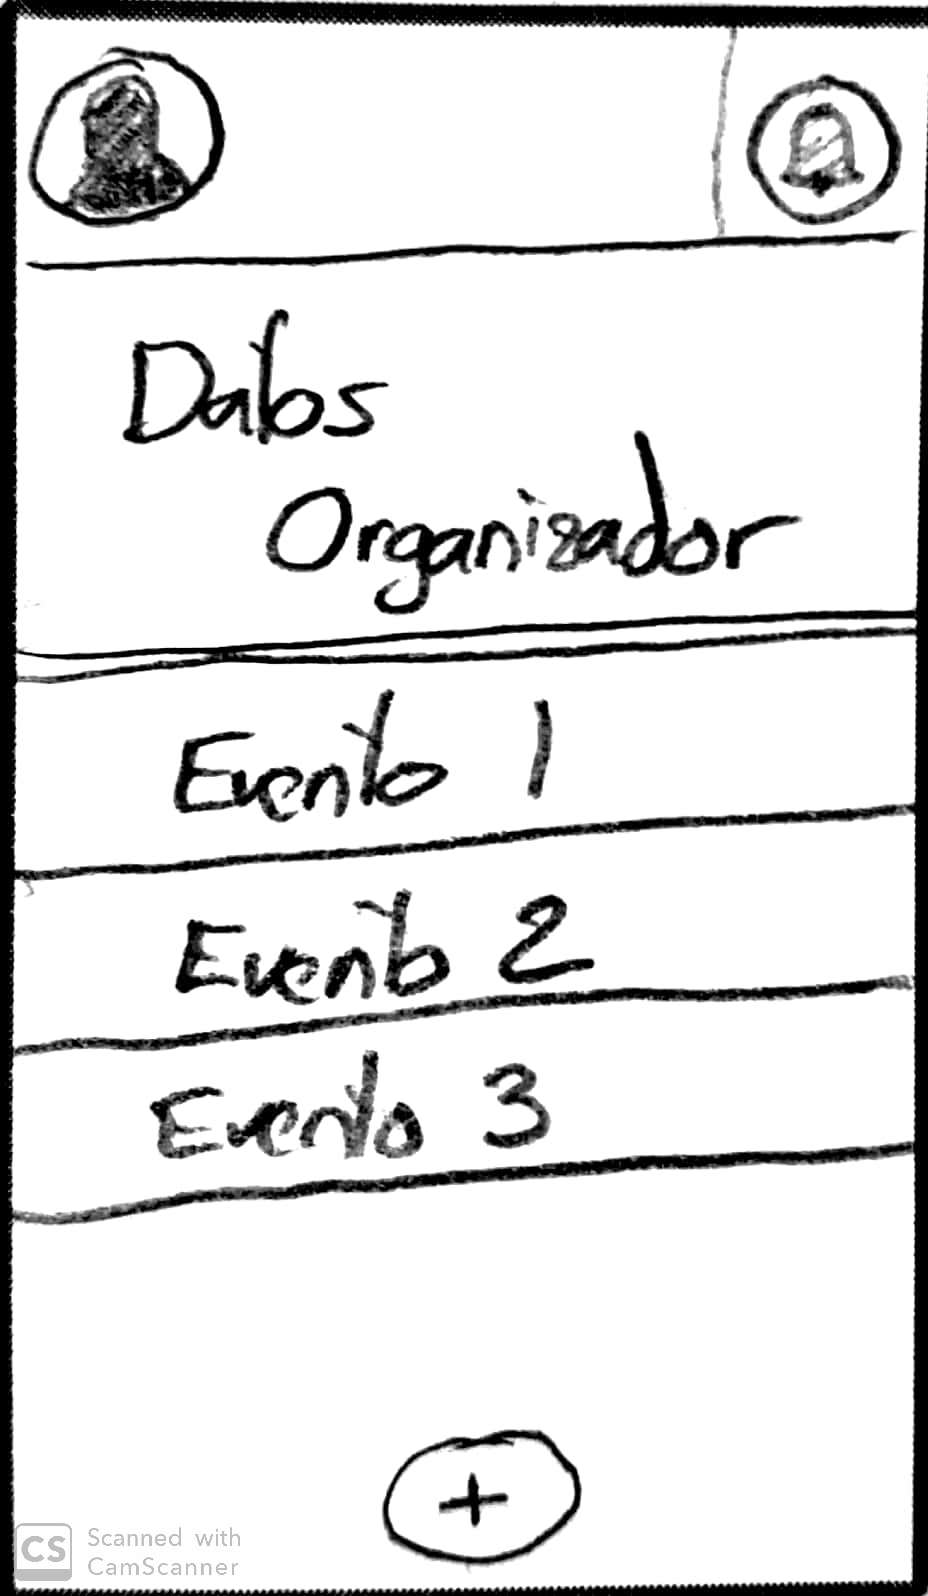 Datos
Organizador
Evento 1
Evento 2
Evento 3
+
CS Scanned with
CamScanner